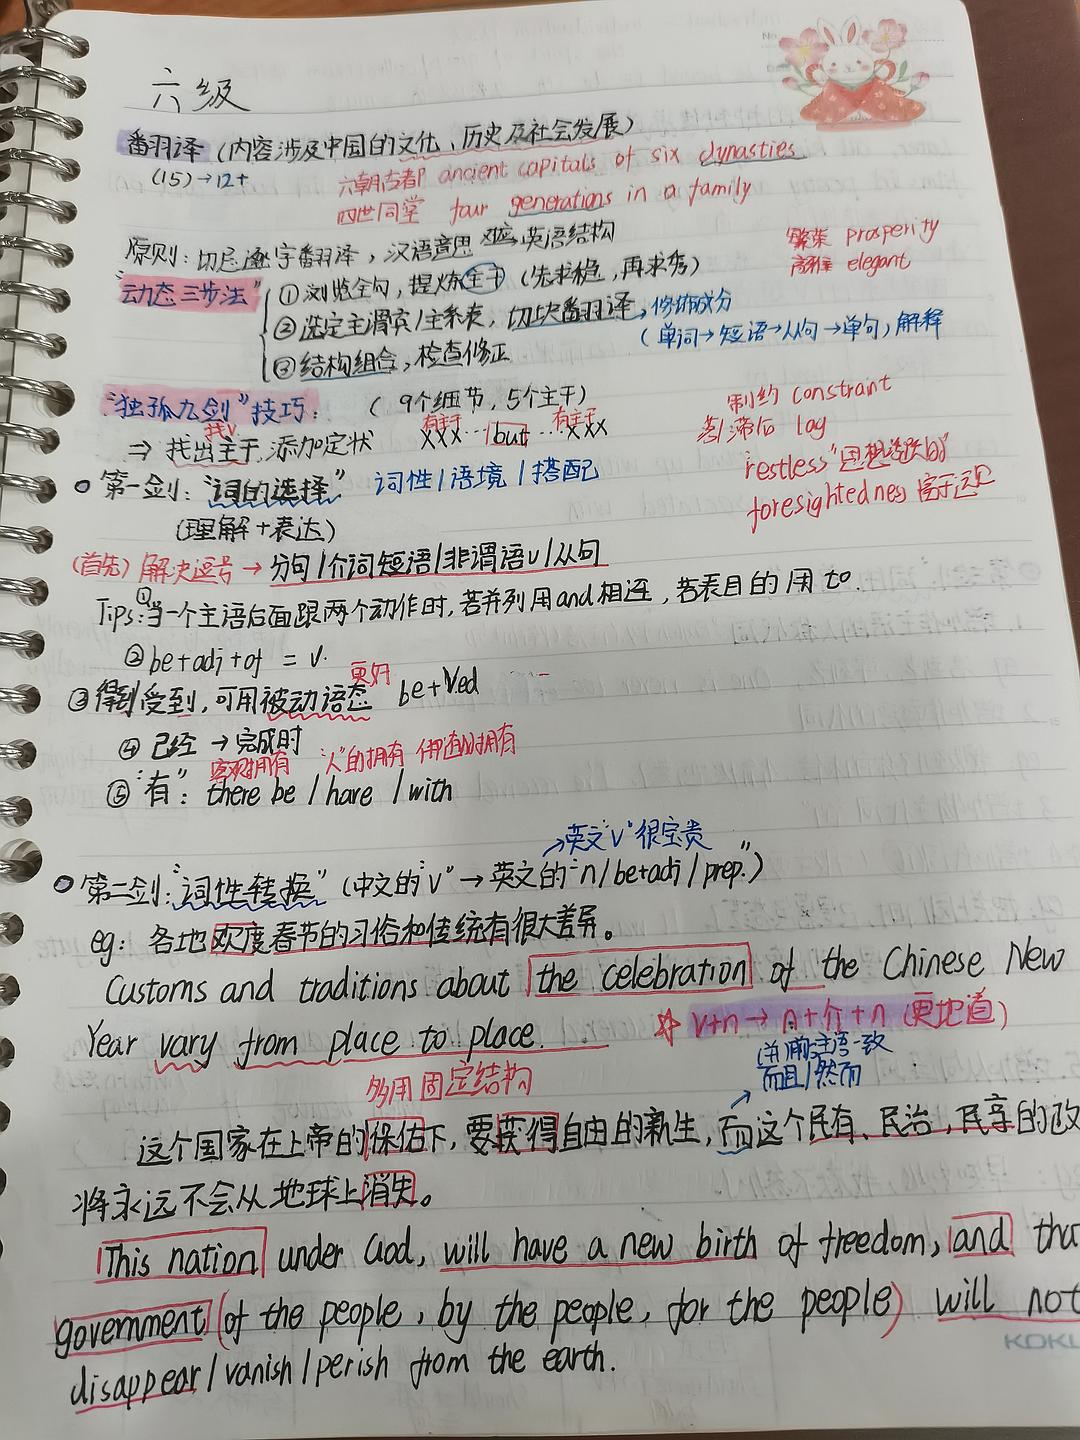 No.
六级
翻译（内容涉及中国的文化、历史及社会发展）
(15)→12+
六朝古都 ancient capitals of six dynasties
四世同堂 four generations in a family
原则：切忌逐字翻译，汉语意思 对应 英语结构
繁荣 prosperity
高雅 elegant
"动态三步法"
①浏览全句，提炼主干（先求稳，再求秀）
②选定主谓宾/主系表，切块翻译，修饰成分
（单词→短语→从句→单句），解释
③结构组合，检查修正
"独孤九剑"技巧：（9个细节，5个主干）
制约 constraint
找v 有主干 有主干
⇒ 找出主干，添加定状 xxx…but…xxx
滞后 lag
restless "思想活跃的"
foresightedness 高于远见
第一剑："词的选择" 词性/语境/搭配
（理解+表达）
（首先）解决逗号→分句/个词短语/非谓语v/从句
Tips：①当一个主语后面跟两个动作时，若并列用and相连，若表目的用to
②be+adj+of = v.
更好
③得到受到，可用被动语态 be+Ved
④已经→完成时
客观拥有 "人"的拥有 伴随的拥有
⑤"有"：there be / have / with
→英文"v"很宝贵
第二剑："词性转换"（中文的"v"→英文的"n/be+adj/prep."）
eg：各地欢度春节的习俗和传统有很大差异。
Customs and traditions about the celebration of the Chinese New
Year vary from place to place.
v+n→n+介+n（更地道）
多用固定结构
并/前主语一致
而且/然而
这个国家在上帝的保佑下，要获得自由的新生，而这个民有、民治，民享的政
将永远不会从地球上消失。
This nation under God, will have a new birth of freedom, and tha
government (of the people, by the people, for the people) will not
disappear/vanish/perish from the earth.
KOKU